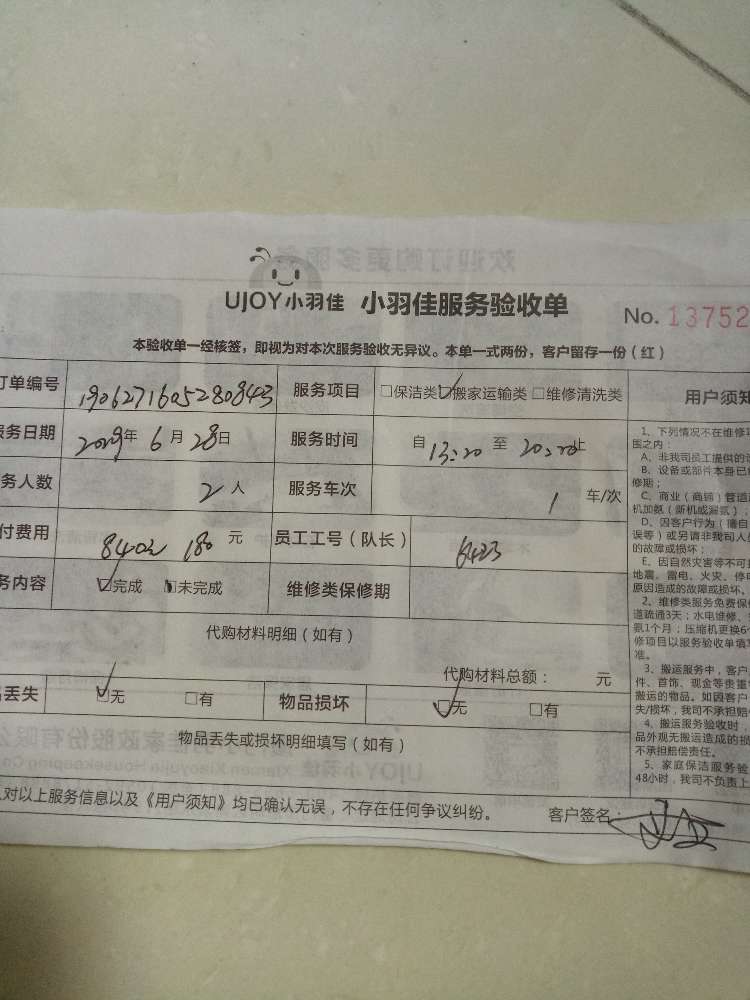 UJOY小羽佳 小羽佳服务验收单 No. 13752
本验收单一经核签，即视为对本次服务验收无异议。本单一式两份，客户留存一份（红）
订单编号 1906271605280843 服务项目 □保洁类 ☑搬家运输类 □维修清洗类 用户须知
服务日期 2019年 6月 28日 服务时间 自 13:20 至 20:20 止
务人数 2人 服务车次 1 车/次
付费用 180 元 员工工号（队长） 6423
务内容 ☑完成 □未完成 维修类保修期
代购材料明细（如有）
代购材料总额： 元
品丢失 ☑无 □有 物品损坏 ☑无 □有
物品丢失或损坏明细填写（如有）
人对以上服务信息以及《用户须知》均已确认无误，不存在任何争议纠纷。 客户签名：
1、下列情况不在维修
围之内：
A、非我司员工提供的
B、设备或部件本身已
修期；
C、商业（商铺）管道
机加氨（新机或漏氨）
D、因客户行为（擅自
误等）或另请非我司人
的故障或损坏；
E、因自然灾害等不可
地震、雷电、火灾、停
原因造成的故障或损坏。
2、维修类服务免费保
道疏通3天；水电维修、
氨1个月；压缩机更换6
修项目以服务验收单填
准。
3、搬运服务中，客户
件、首饰、现金等贵重
搬运的物品。如因客户
失/损坏，我司不承担赔
4、搬运服务验收时，
品外观无搬运造成的损
不承担赔偿责任。
5、家庭保洁服务验
48小时，我司不负责上